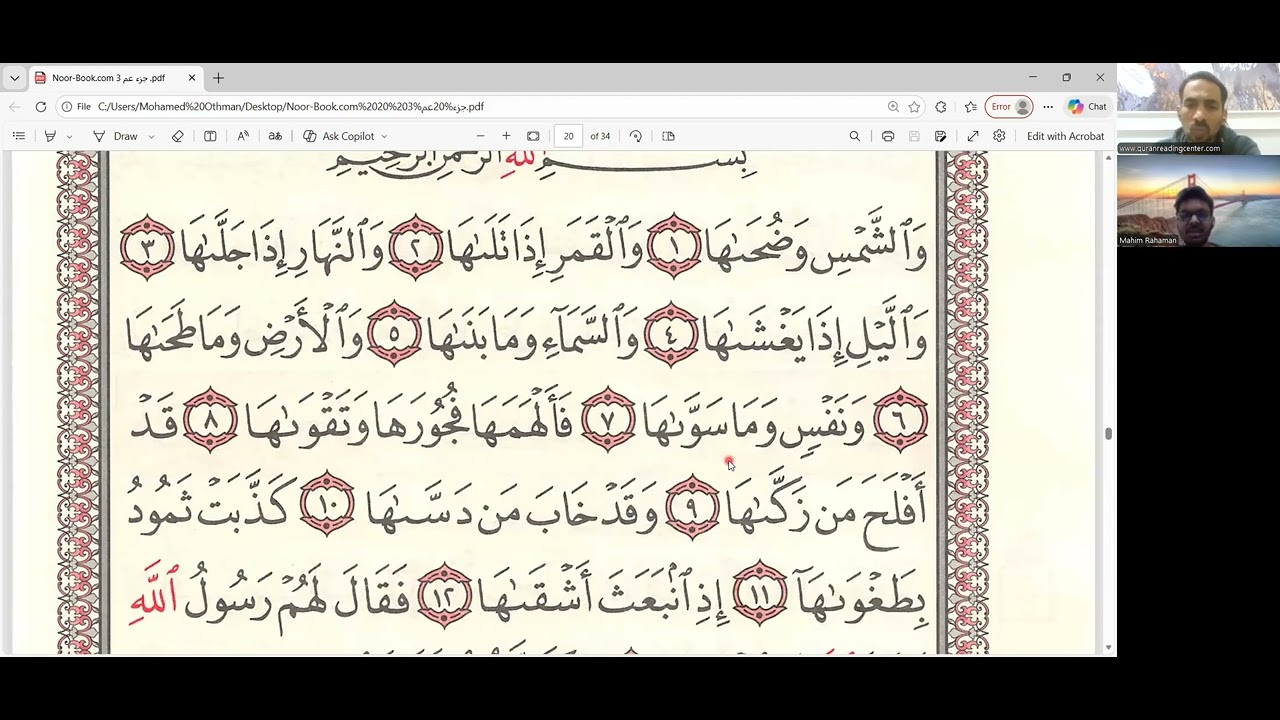 Noor-Book.com 3 جزء عم .pdf
File C:/Users/Mohamed%20Othman/Desktop/Noor-Book.com%2020%203%جزء%20عم.pdf
Error
Chat
Draw
Ask Copilot
20 of 34
Edit with Acrobat
www.quranreadingcenter.com
Mahim Rahaman
بِسْمِ ٱللَّهِ ٱلرَّحْمَٰنِ ٱلرَّحِيمِ
وَٱلشَّمْسِ وَضُحَىٰهَا ١ وَٱلْقَمَرِ إِذَا تَلَىٰهَا ٢ وَٱلنَّهَارِ إِذَا جَلَّىٰهَا ٣
وَٱلَّيْلِ إِذَا يَغْشَىٰهَا ٤ وَٱلسَّمَآءِ وَمَا بَنَىٰهَا ٥ وَٱلْأَرْضِ وَمَا طَحَىٰهَا
٦ وَنَفْسٍ وَمَا سَوَّىٰهَا ٧ فَأَلْهَمَهَا فُجُورَهَا وَتَقْوَىٰهَا ٨ قَدْ
أَفْلَحَ مَن زَكَّىٰهَا ٩ وَقَدْ خَابَ مَن دَسَّىٰهَا ١٠ كَذَّبَتْ ثَمُودُ
بِطَغْوَىٰهَآ ١١ إِذِ ٱنۢبَعَثَ أَشْقَىٰهَا ١٢ فَقَالَ لَهُمْ رَسُولُ ٱللَّهِ